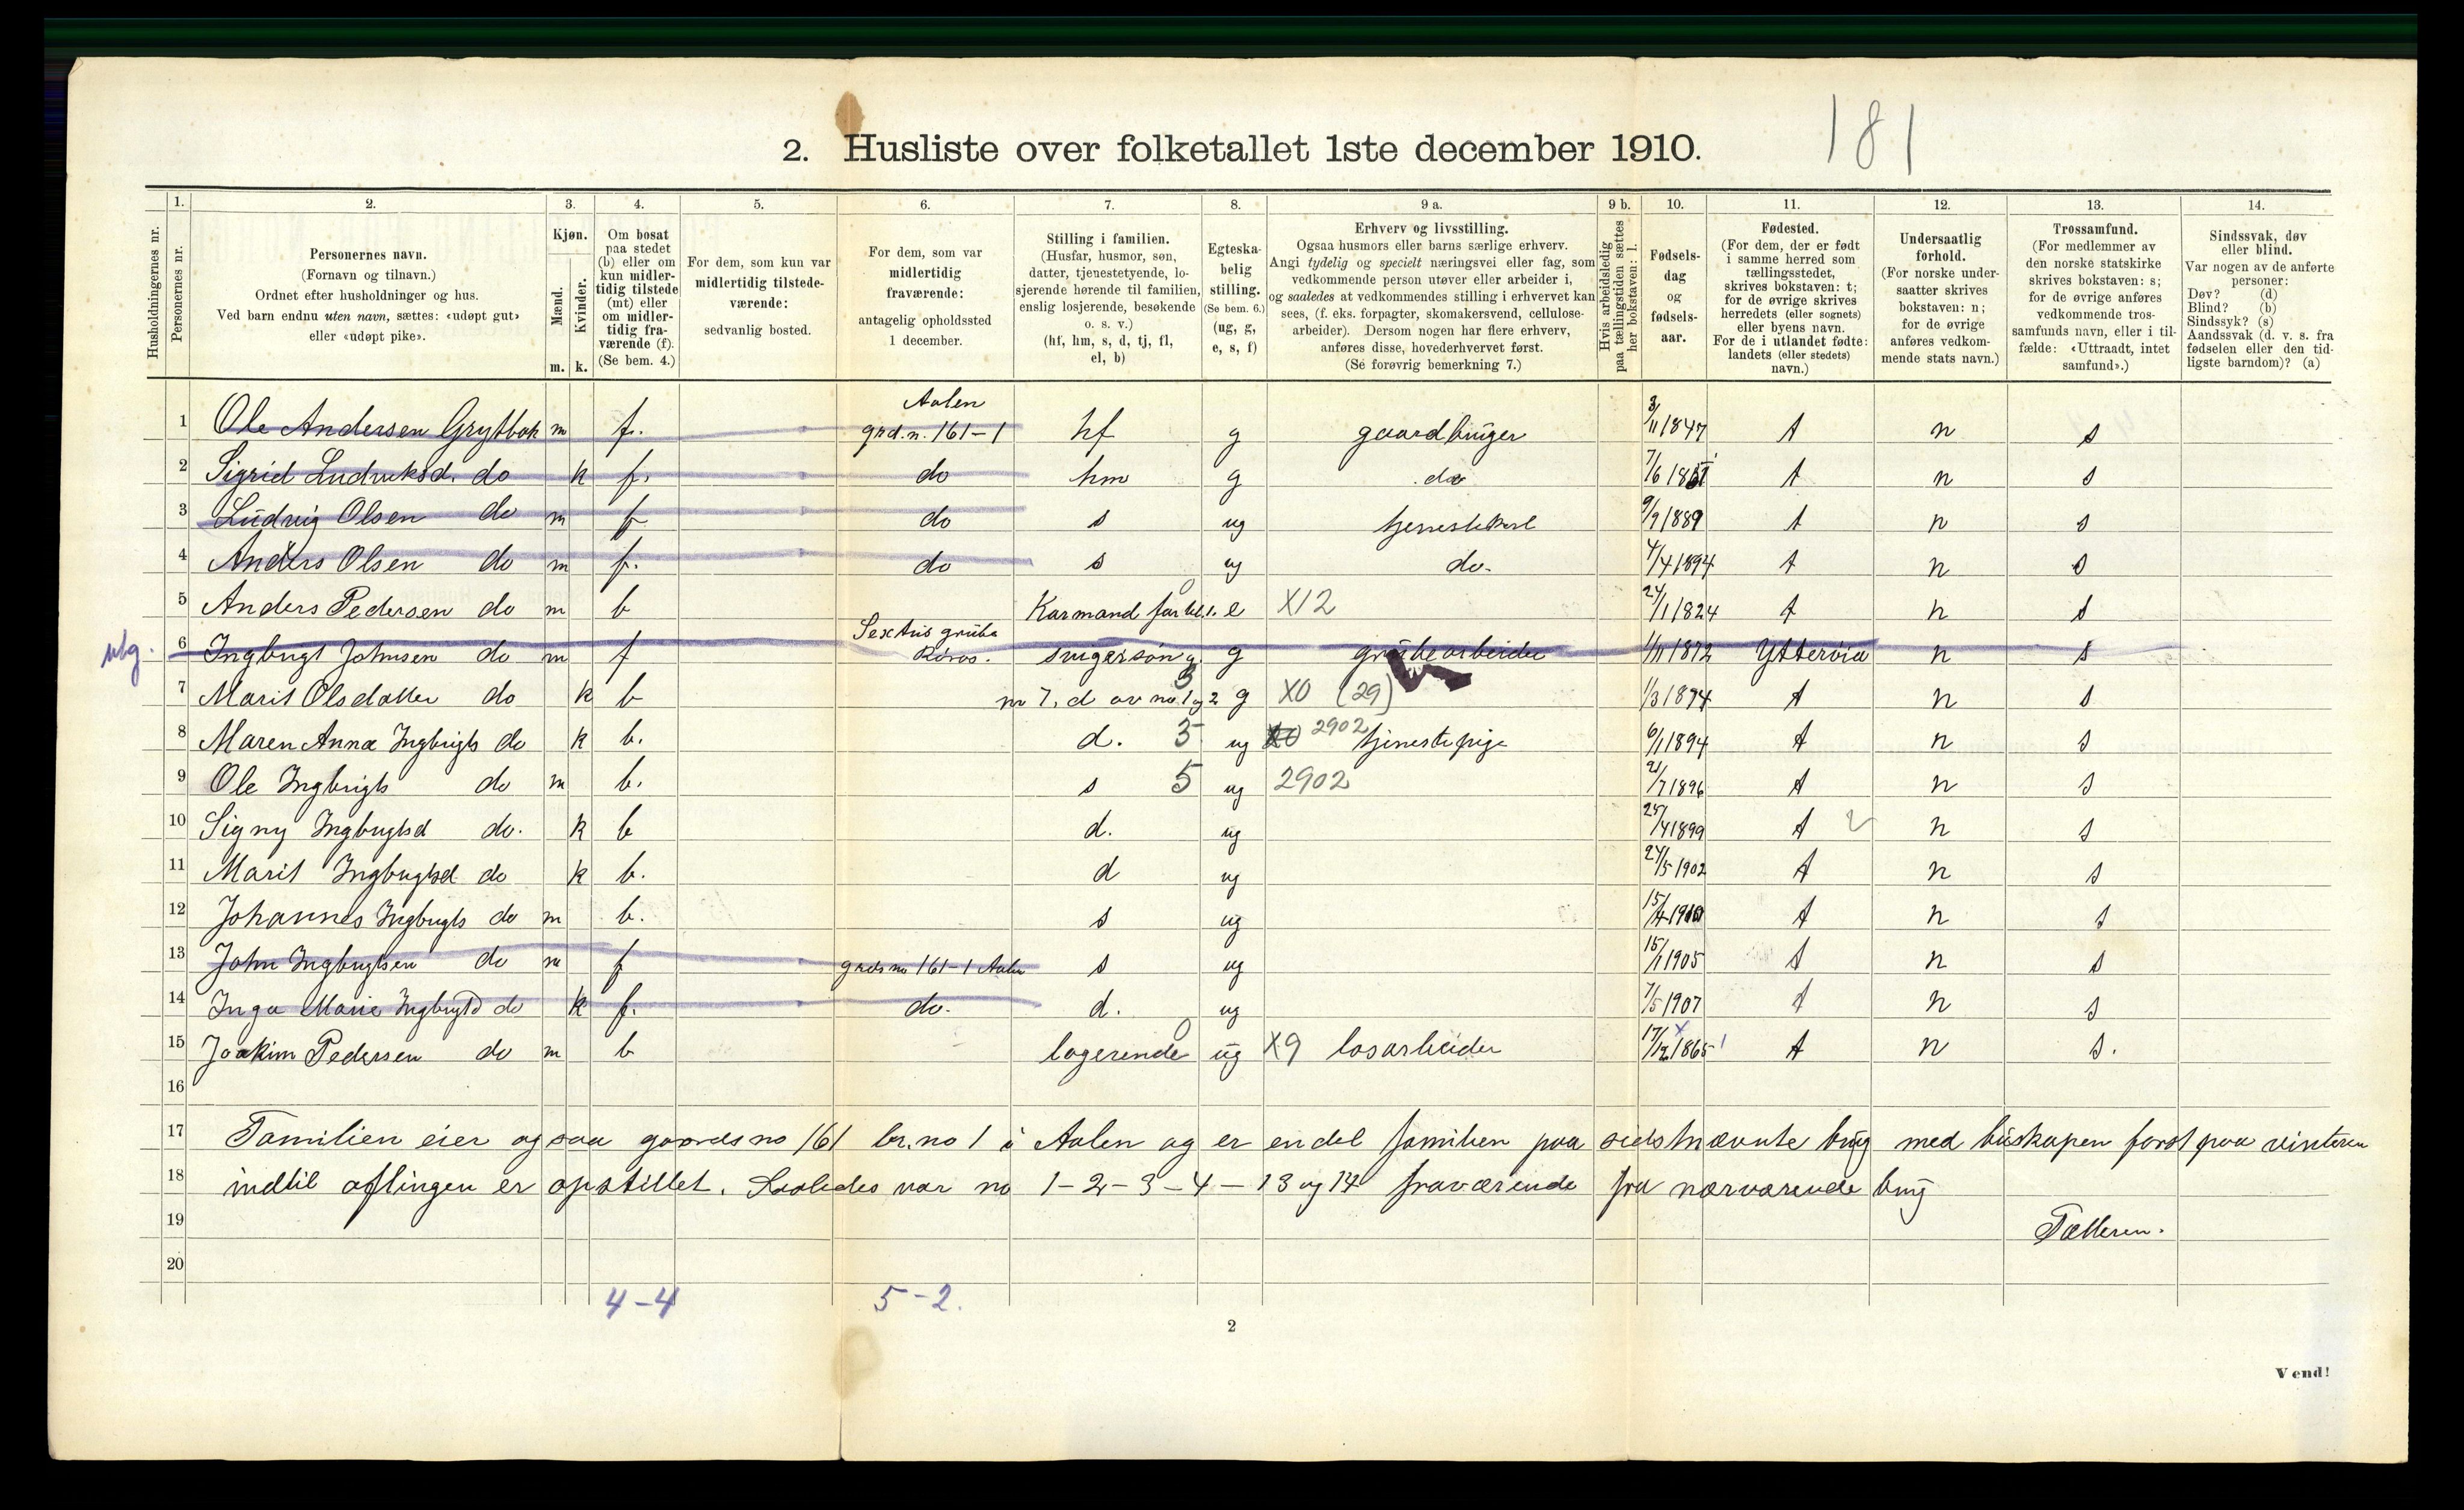 181
2. Husliste over folketallet 1ste december 1910.
1. 2. 3. 4. 5. 6. 7. 8. 9 a. 9 b. 10. 11. 12. 13. 14.
Husholdningernes nr.
Personernes nr.
Personernes navn.
(Fornavn og tilnavn.)
Ordnet efter husholdninger og hus.
Ved barn endnu uten navn, sættes: «udøpt gut»
eller «udøpt pike».
Kjøn.
Mænd.
Kvinder.
m. k.
Om bosat
paa stedet
(b) eller om
kun midler-
tidig tilstede
(mt) eller
om midler-
tidig fra-
værende (f).
(Se bem. 4.)
For dem, som kun var
midlertidig tilstede-
værende:
sedvanlig bosted.
For dem, som var
midlertidig
fraværende:
antagelig opholdssted
1 december.
Stilling i familien.
(Husfar, husmor, søn,
datter, tjenestetyende, lo-
sjerende hørende til familien,
enslig losjerende, besøkende
o. s. v.)
(hf, hm, s, d, tj, fl,
el, b)
Egteska-
belig
stilling.
(Se bem. 6.)
(ug, g,
e, s, f)
Erhverv og livsstilling.
Ogsaa husmors eller barns særlige erhverv.
Angi tydelig og specielt næringsvei eller fag, som
vedkommende person utøver eller arbeider i,
og saaledes at vedkommendes stilling i erhvervet kan
sees, (f. eks. forpagter, skomakersvend, cellulose-
arbeider). Dersom nogen har flere erhverv,
anføres disse, hovederhvervet først.
(Se forøvrig bemerkning 7.)
Hvis arbeidsledig
paa tællingstiden sættes
her bokstaven: l.
Fødsels-
dag
og
fødsels-
aar.
Fødested.
(For dem, der er født
i samme herred som
tællingsstedet,
skrives bokstaven: t;
for de øvrige skrives
herredets (eller sognets)
eller byens navn.
For de i utlandet fødte:
landets (eller stedets)
navn.)
Undersaatlig
forhold.
(For norske under-
saatter skrives
bokstaven: n;
for de øvrige
anføres vedkom-
mende stats navn.)
Trossamfund.
(For medlemmer av
den norske statskirke
skrives bokstaven: s;
for de øvrige anføres
vedkommende tros-
samfunds navn, eller i til-
fælde: «Uttraadt, intet
samfund».)
Sindssvak, døv
eller blind.
Var nogen av de anførte
personer:
Døv? (d)
Blind? (b)
Sindssyk? (s)
Aandssvak (d. v. s. fra
fødselen eller den tid-
ligste barndom)? (a)
Aalen
1 Ole Andersen Grytbak m f. grd. n. 161-1 hf g gaardbruger 3/11 1847 t n s
2 Sigrid Ludviksd. do k f. do hm g do 7/6 t n s
3 Ludvig Olsen do m f do s ug tjenestekarl 9/9 1889 t n s
4 Anders Olsen do m f. do s ug do. 4/4 1894 t n s
5 Anders Pedersen do m b Karmand e X12 24/1 1824 t n s
Sextus gruba
ubg. 6 Ingbrigt Johnsen do m f Røros. svigersøn g grubearbeider 1/11 1872 Ytterøia n s
7 Marit Olsdatter do k b nr 7. d av no 1 og 2 g X0 (29) 1/3 1874 t n s
8 Maren Anna Ingbrigts do k b. d. 5 ug 2902 tjenestepige 6/1 1894 t n s
9 Ole Ingbrigts do m b. s 5 ug 2902 21/7 1896 t n s
10 Signy Ingbrigtsd do. k b d. ug 25/4 1899 t n s
11 Marit Ingbrigtsd do k b. d ug 24/5 1902 t n s
12 Johannes Ingbrigts do m b. s ug 15/4 1910 t n s
13 John Ingbrigtsen do m f grds no 161-1 Aalen s ug 15/1 1905 t n s
14 Inga Marie Ingbrigtd do k f. do. d. ug 7/5 1907 t n s
15 Joakim Pedersen do m b logerende 0 ug X9 løsarbeider 17/12 1865 t n s.
16
17 Familien eier ogsaa gaards no 161 br. no 1 i Aalen og er en del familien paa sidstnævnte brug med buskapen først paa vinteren
18 indtil avlingen er opstillet. Saaledes var no 1-2-3-4-13 og 14 fraværende fra nærværende brug
19 Tælleren.
20
4-4 5-2.
2
Vend!